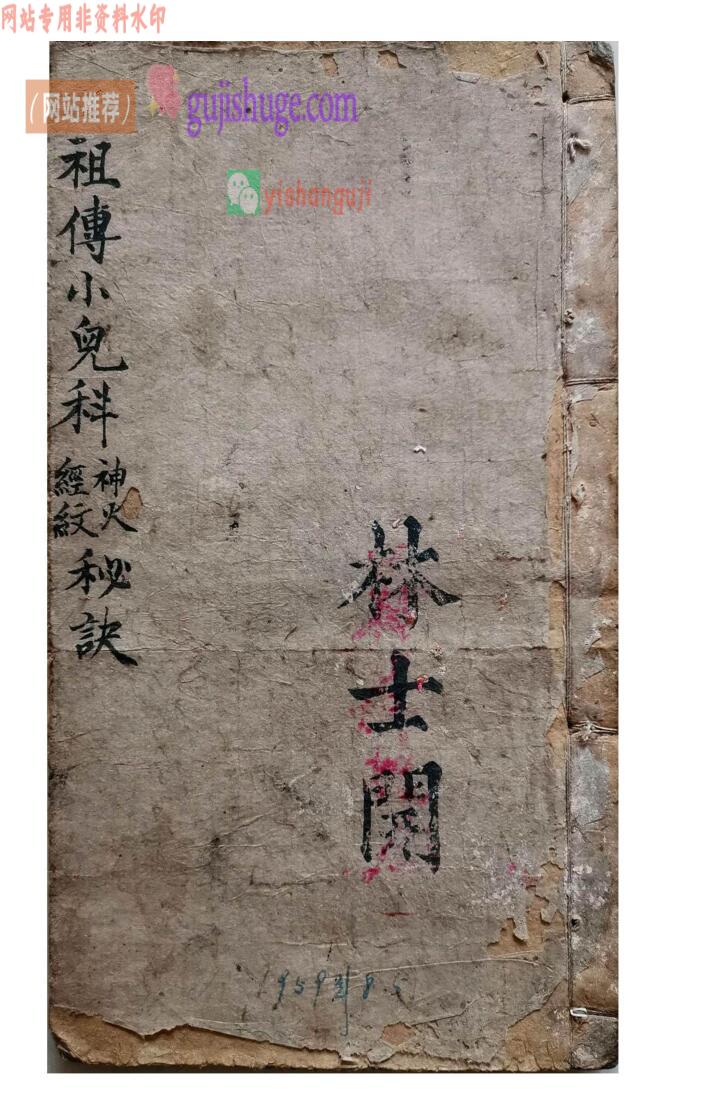 网站专用非资料水印
（网站推荐）
gujishuge.com
yishanguji
祖傳小兒科
神火
經紋
秘訣
林士開
1959年8.5